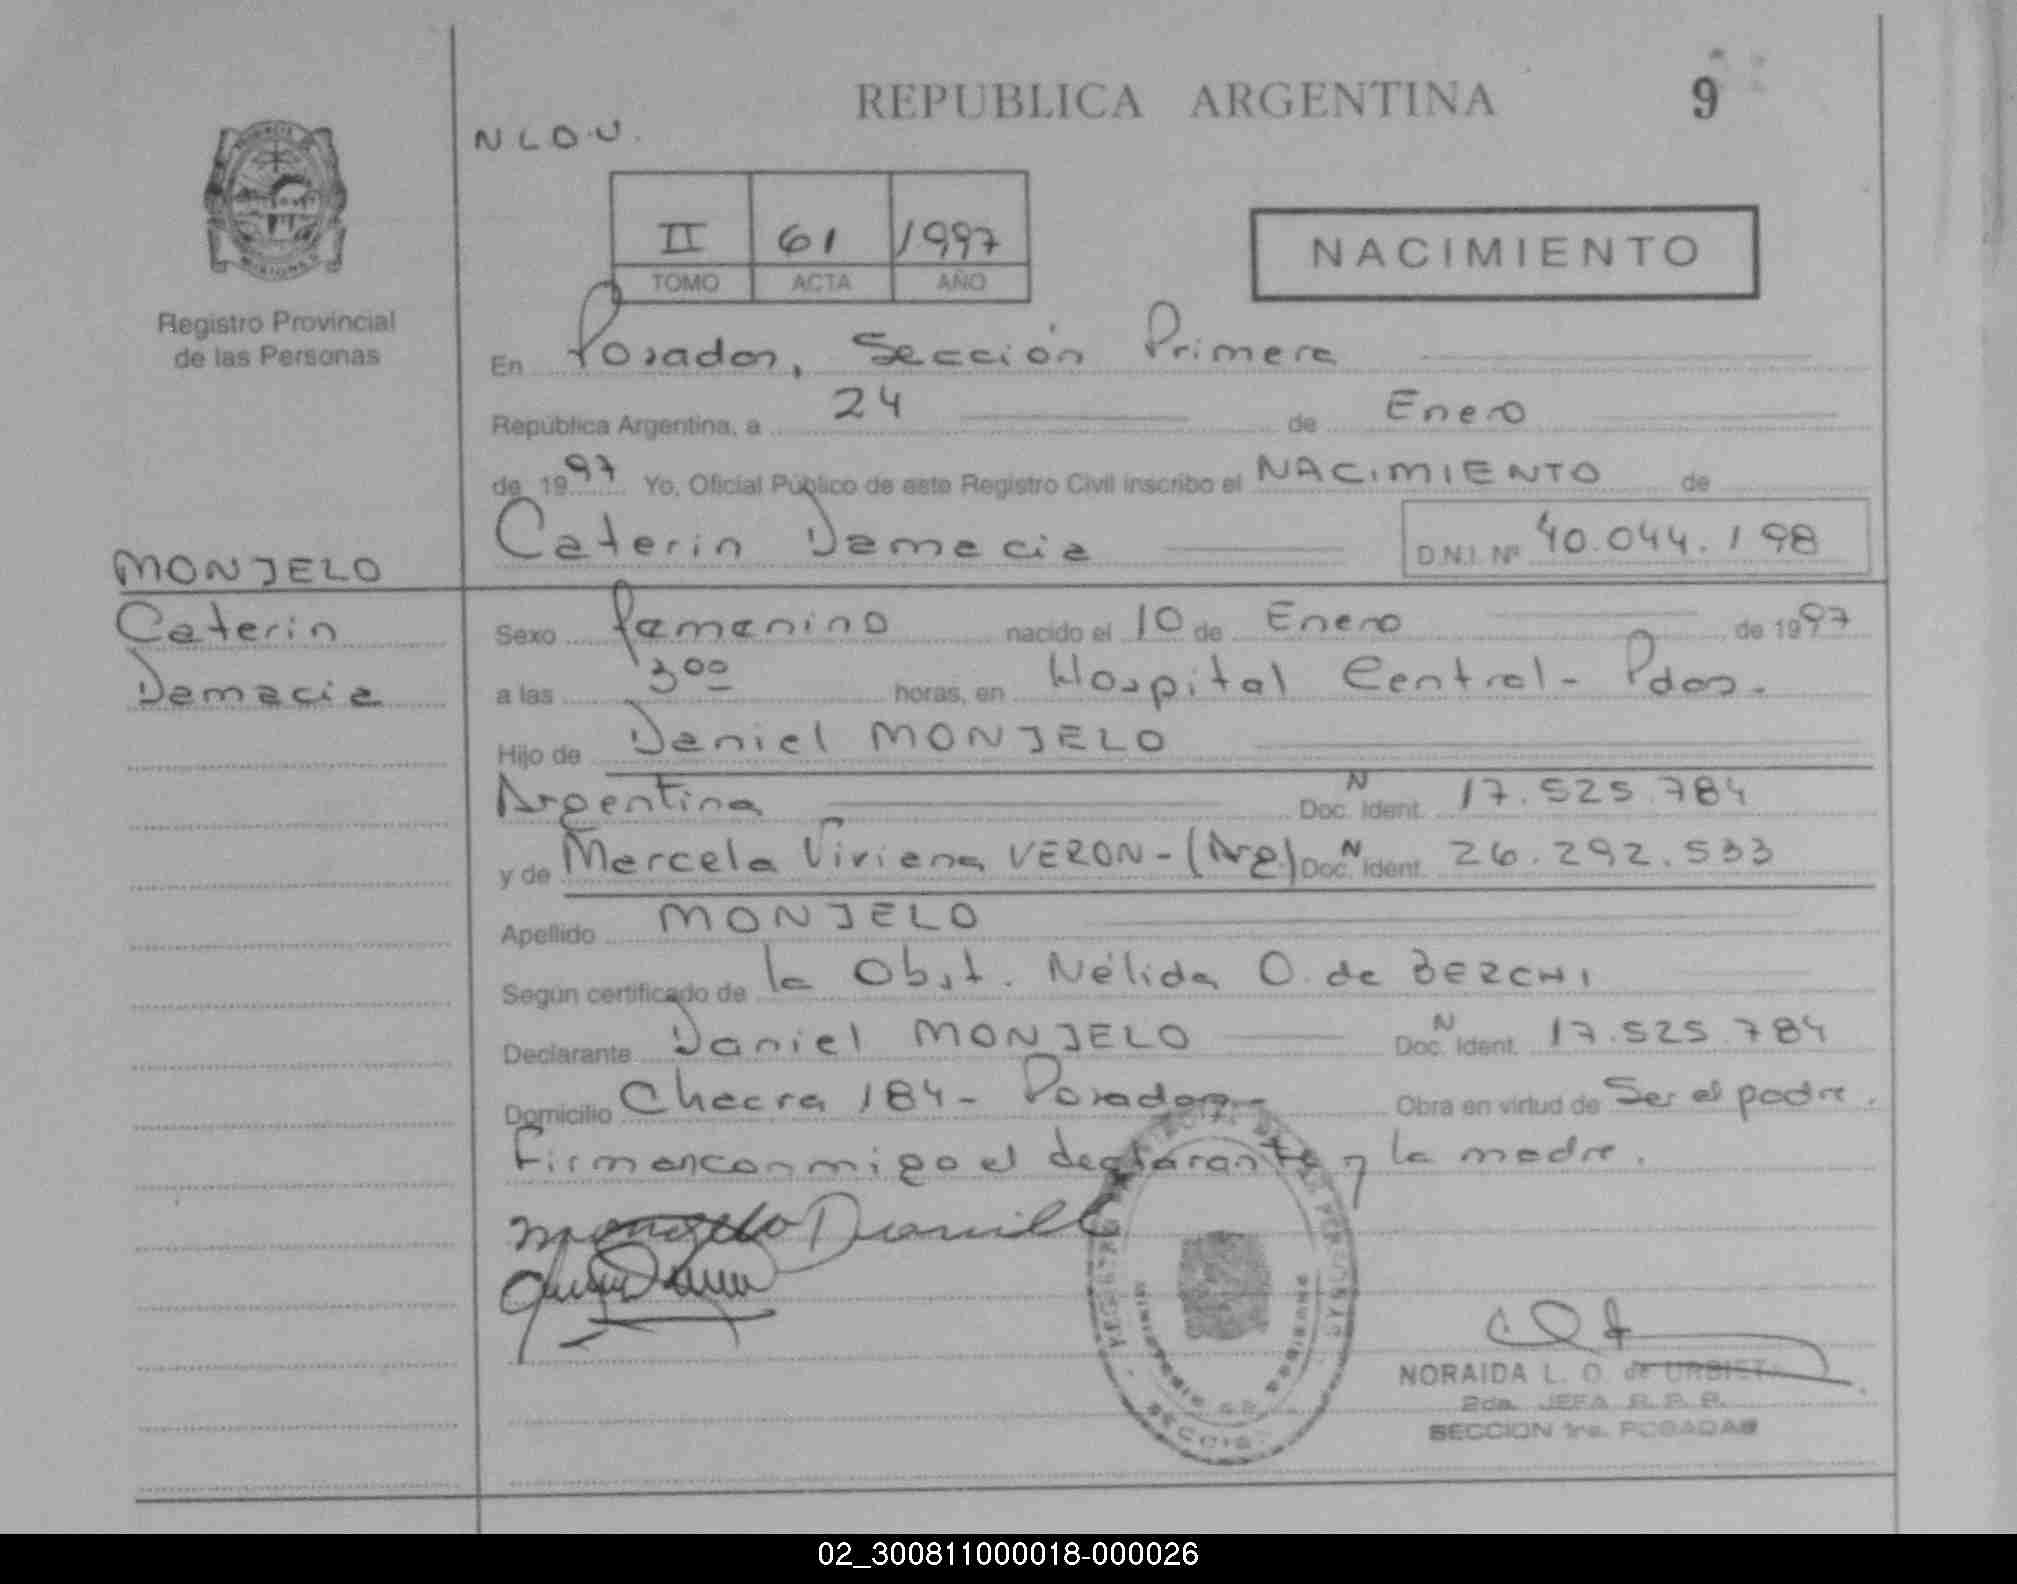 REPUBLICA ARGENTINA 9
N L O. U.
II 61 1997
TOMO ACTA AÑO
NACIMIENTO
MISIONES
Registro Provincial
de las Personas
En Posadas, Sección Primera
República Argentina, a 24 de Enero
de 1997 Yo, Oficial Público de este Registro Civil inscribo el NACIMIENTO de
Caterin Damacia D.N.I. Nº 40.044.198
MONJELO
Caterin
Damacia
Sexo femenino nacido el 10 de Enero de 1997
a las 3 00 horas, en Hospital Central - Pdas.
Hijo de Daniel MONJELO
Argentina Doc. Ident. N 17.525.784
y de Marcela Viviana VERON - (Arg) Doc. Ident. N 26.292.533
Apellido MONJELO
Según certificado de la Obst. Nélida O. de BERCHI
Declarante Daniel MONJELO Doc. Ident. N 17.525.784
Domicilio Chacra 184 - Posadas - Obra en virtud de Ser el padre.
Firman conmigo el declarante y la madre.
Monjelo Daniel
NORAIDA L. O. de URBIETA
2da. JEFA R. P. P.
SECCION 1ra. POSADAS
02_300811000018-000026